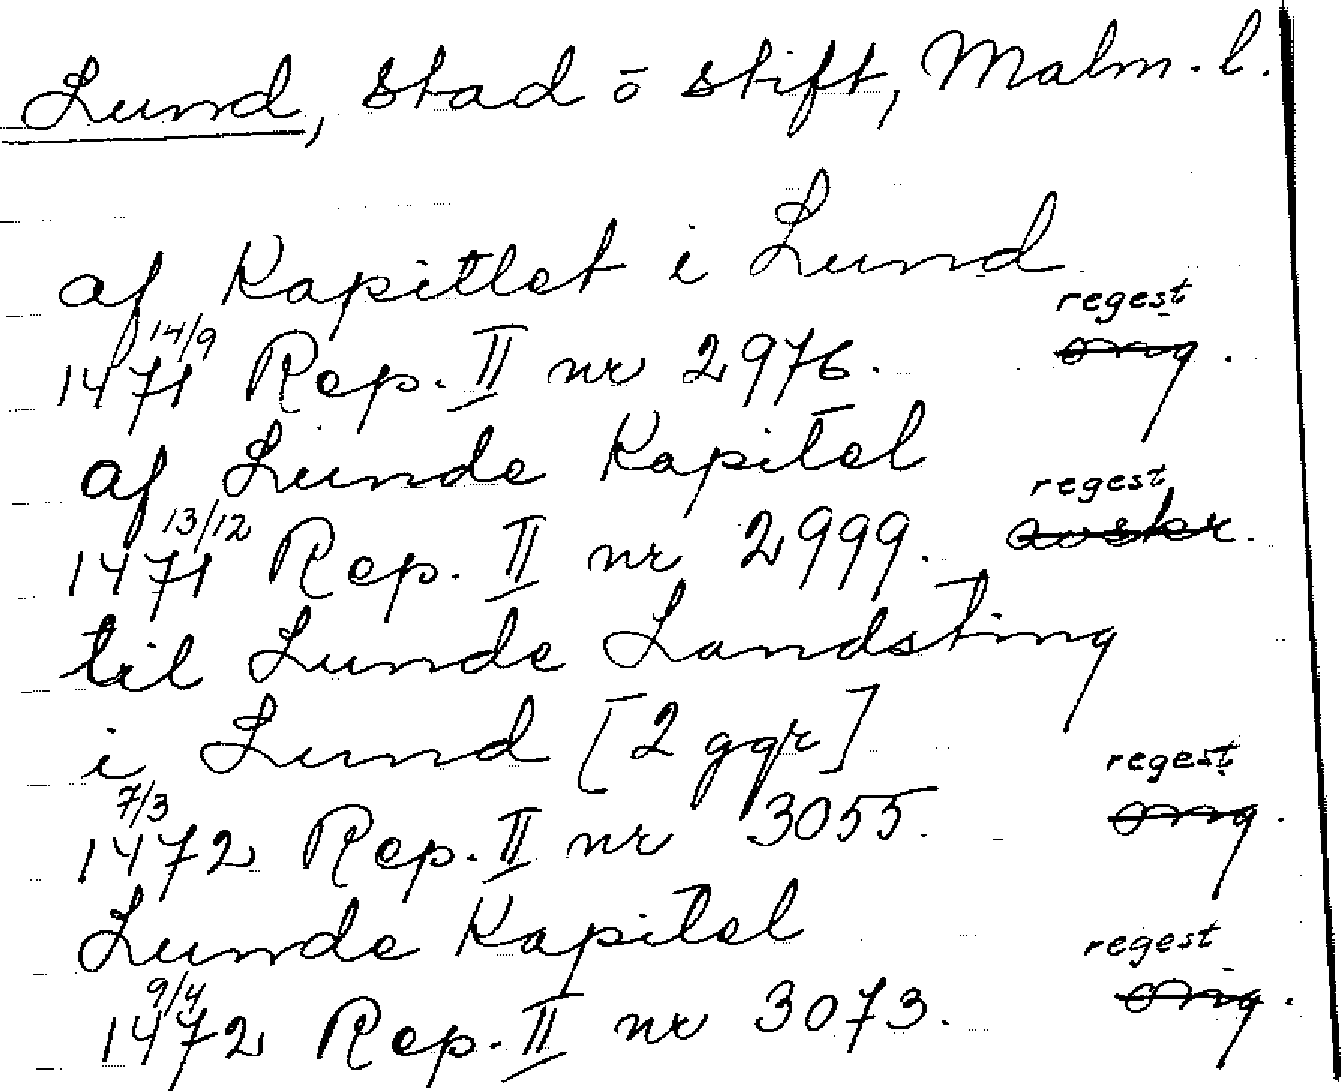 Lund, stad ō stift, Malm. l.
af Kapitlet i Lund
regest
14/9
1471 Rep. II nr 2976. orig.
af Lunde Kapitel
regest
13/12
1471 Rep. II nr 2999. avskr.
til Lunde Landsting
i Lund [2 ggr]
regest
7/3
1472 Rep. II nr 3055. orig.
Lunde Kapitel
regest
9/4
1472 Rep. II nr 3073. orig.